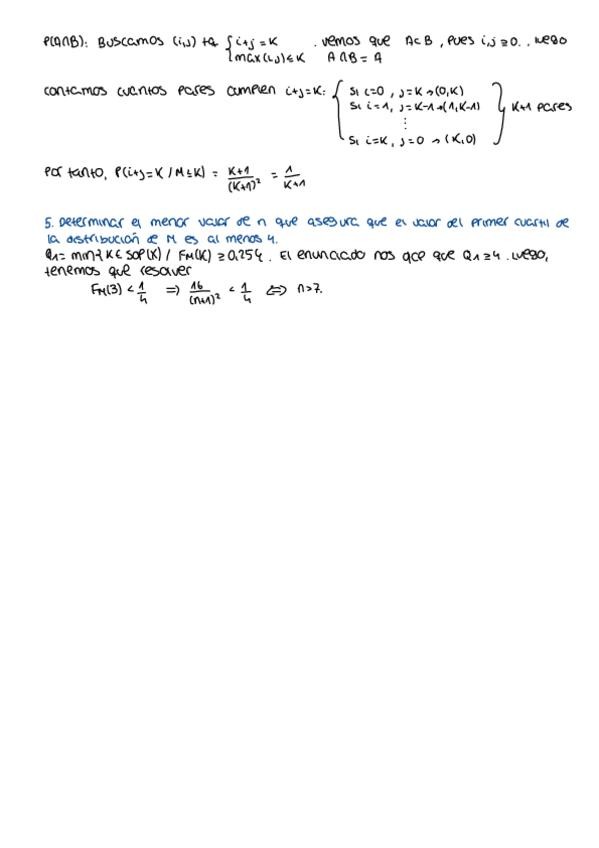 P(A∩B): Buscamos (i,j) tq { i+j=K . vemos que A⊂B, pues i,j ≥0.. Luego
max(i,j)≤K A∩B=A
contamos cuantos pares cumplen i+j=K: { Si i=0, j=K→(0,K)
Si i=1, j=K-1→(1,K-1) } K+1 pares
⋮
Si i=K, j=0→(K,0)
Por tanto, P(i+j=K / M≤K) = K+1/(K+1)² = 1/K+1
5. Determinar el menor valor de n que asegura que el valor del primer cuartil de
la distribución de M es al menos 4.
Q1= min{ K∈ sop(X) / FM(K) ≥0,25}. El enunciado nos dice que Q1≥4. Luego,
tenemos que resolver
FM(3) < 1/4 ⇒ 16/(n+1)² < 1/4 ⇔ n>7.